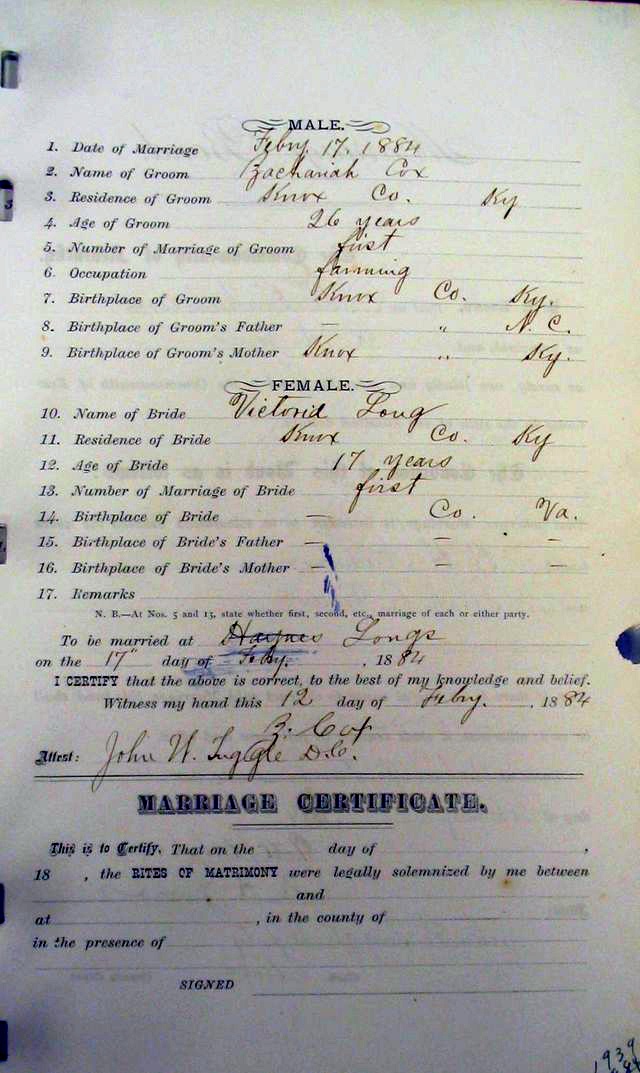 MALE.
1. Date of Marriage Febry. 17. 1884
2. Name of Groom Zachariah Cox
3. Residence of Groom Knox Co. Ky
4. Age of Groom 26 years
5. Number of Marriage of Groom first
6. Occupation farming
7. Birthplace of Groom Knox Co. Ky.
8. Birthplace of Groom's Father — " N. C.
9. Birthplace of Groom's Mother Knox " Ky.
FEMALE.
10. Name of Bride Victoria Long
11. Residence of Bride Knox Co. Ky
12. Age of Bride 17 years
13. Number of Marriage of Bride first
14. Birthplace of Bride — Co. Va.
15. Birthplace of Bride's Father — — —
16. Birthplace of Bride's Mother — — —
17. Remarks
N. B.—At Nos. 5 and 13, state whether first, second, etc., marriage of each or either party.
To be married at Haynes Longs
on the 17" day of Feby. , 1884
I CERTIFY that the above is correct, to the best of my knowledge and belief.
Witness my hand this 12 day of Febry. , 1884
Z. Cox
Attest: John W. D.C.
MARRIAGE CERTIFICATE.
This is to Certify, That on the day of ,
18 , the RITES OF MATRIMONY were legally solemnized by me between
and
at , in the county of
in the presence of
SIGNED
1939